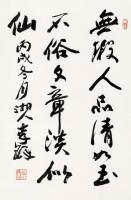 無瑕人品清如玉
不俗文章淡似
仙 丙戌冬月湖人李鐸